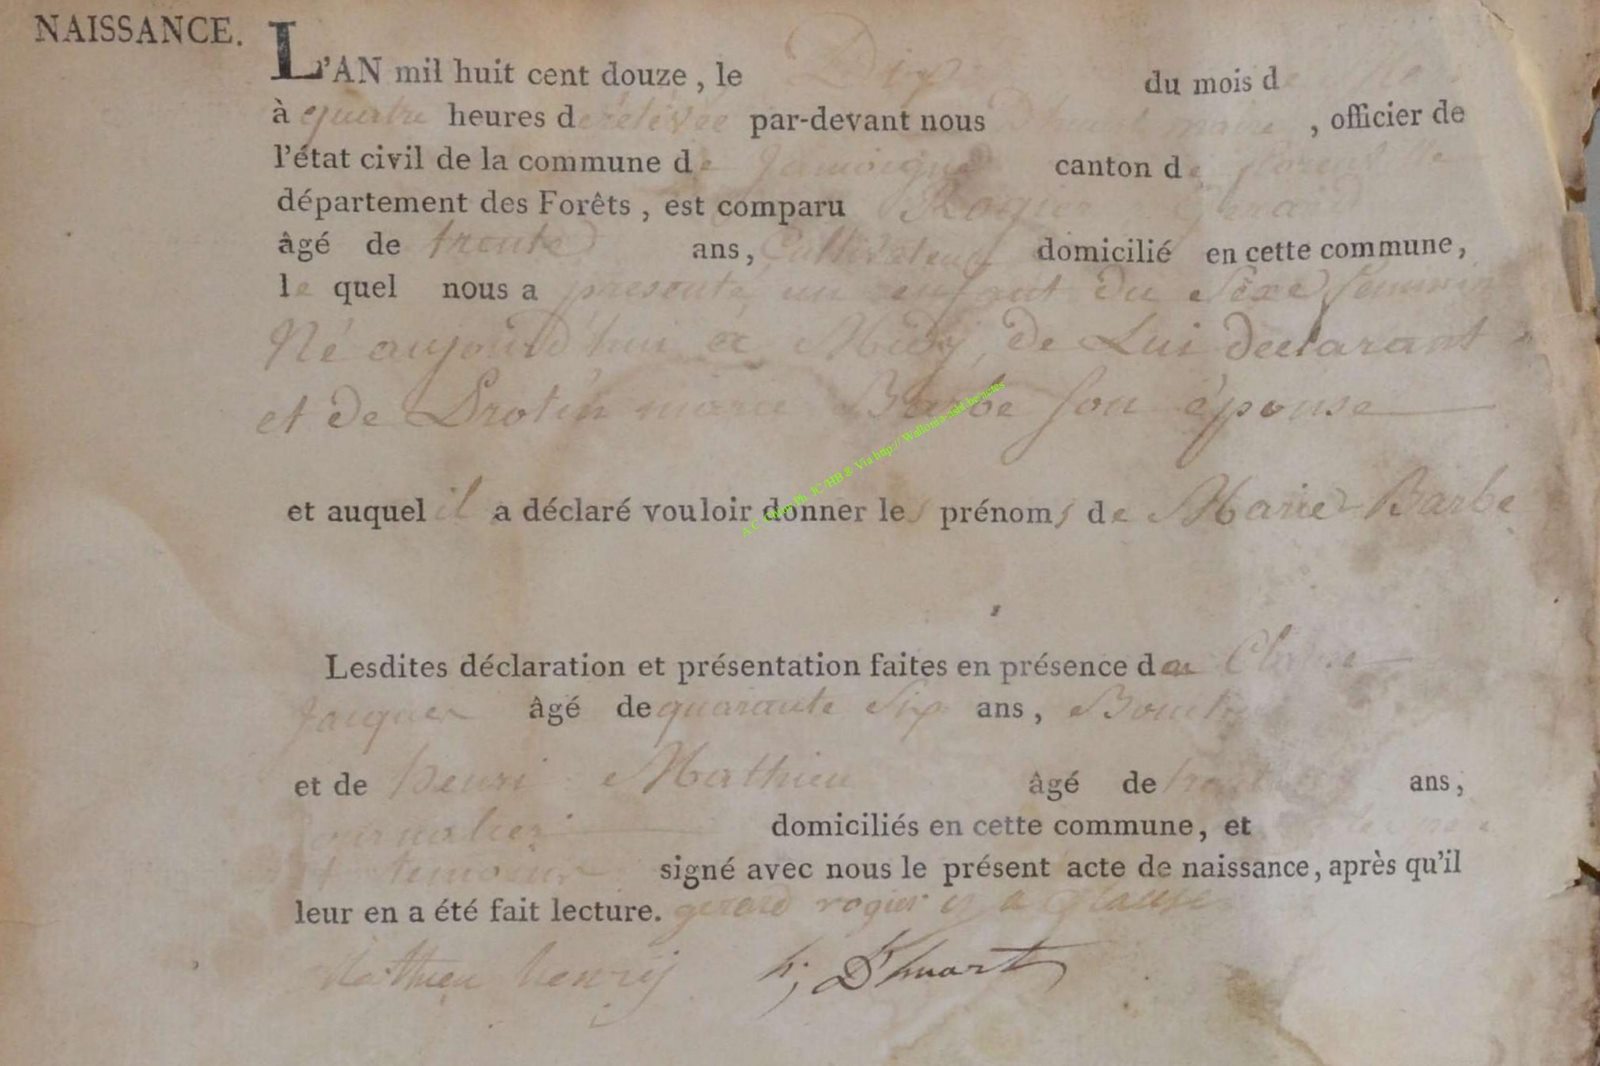 NAISSANCE.
L'AN mil huit cent douze, le Dix du mois d
à quatre heures de relevée par-devant nous Dhuart maire, officier de
l'état civil de la commune de Jamoigne canton de florenville
département des Forêts, est comparu Rogier Gerard
âgé de trente ans, Cultivateur domicilié en cette commune,
le quel nous a presenté un enfant du Sexe feminin
Né aujourd'hui a Midy, de Lui declarant
et de Drotin marie Barbe son épouse
et auquel il a déclaré vouloir donner les prénoms de Marie Barbe
Lesdites déclaration et présentation faites en présence de
Jacques âgé de quarante Six ans,
et de henri Mathieu âgé de ans,
Journalier domiciliés en cette commune, et
et temoins signé avec nous le présent acte de naissance, après qu'il
leur en a été fait lecture. gerard rogier
Mathieu henrij h; Dhuart